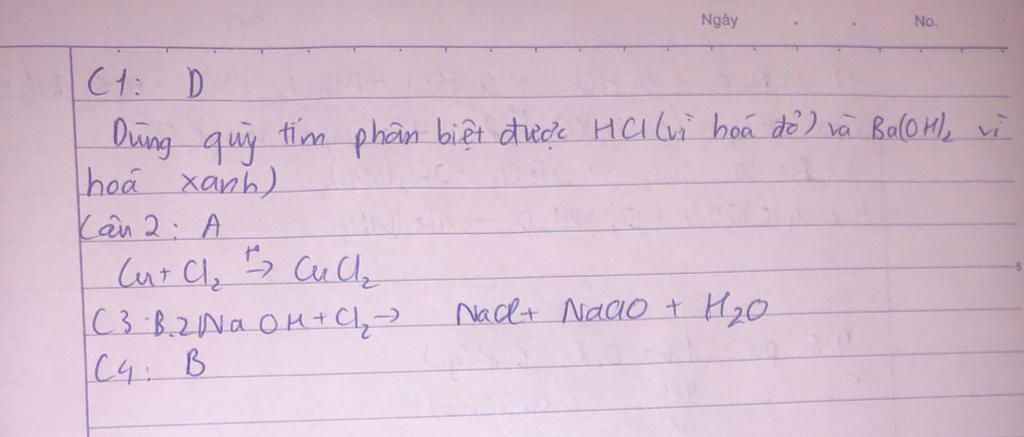 Ngày . . No.
C1: D
Dùng quỳ tím phân biệt được HCl (vì hoá đỏ) và Ba(OH)₂ vì
hoá xanh)
Câu 2: A
Cu + Cl₂ →(t°) CuCl₂
C3: B. 2NaOH + Cl₂ → NaCl + NaClO + H₂O
C4: B